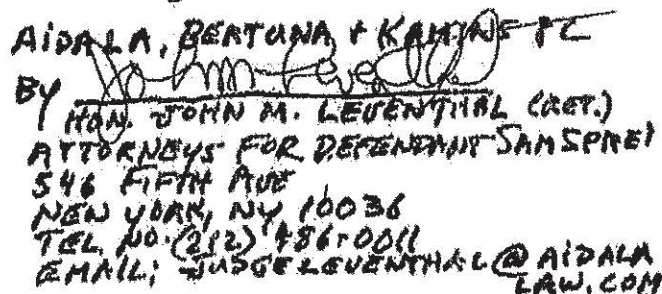 AIDALA, BERTUNA + KAMINS PC
BY John M. Leventhal
HON. JOHN M. LEVENTHAL (RET.)
ATTORNEYS FOR DEFENDANT SAM SPREI
546 FIFTH AVE
NEW YORK, NY 10036
TEL NO. (212) 486-0011
EMAIL; JUDGELEVENTHAL@AIDALA
LAW.COM